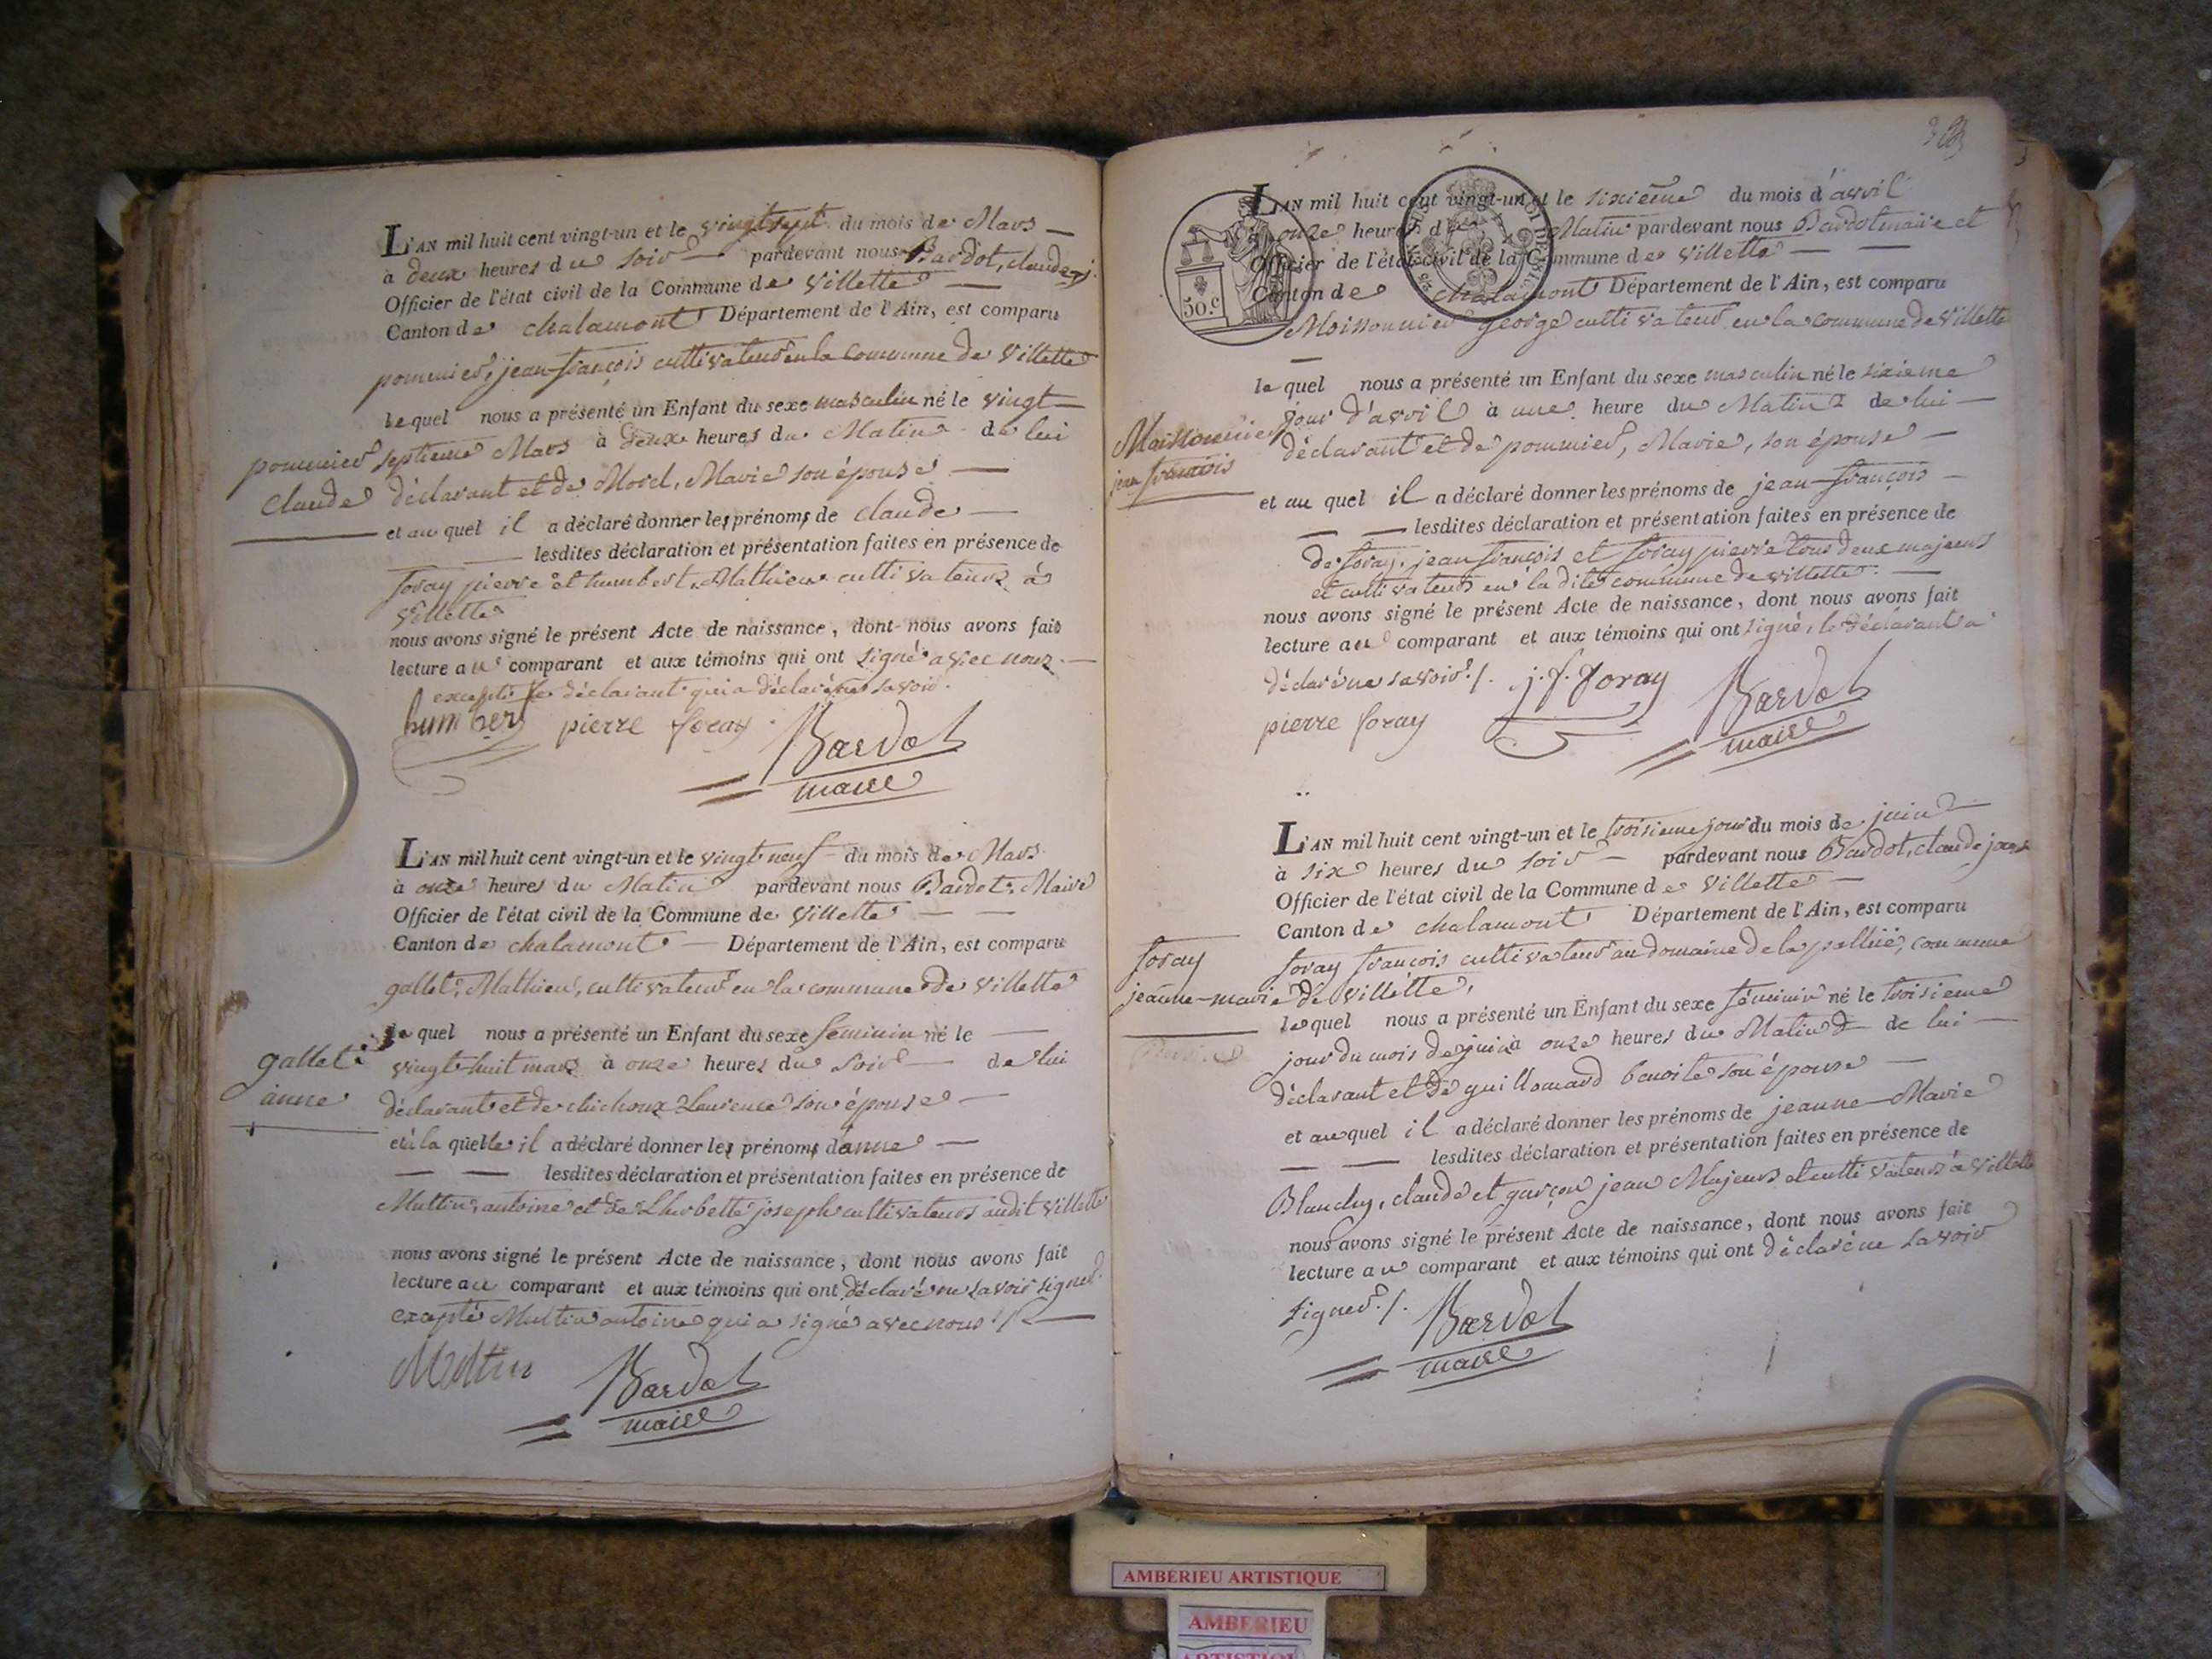 L'AN mil huit cent vingt-un et le vingt sept du mois de Mars
à deux heures du soir pardevant nous Bardot, claude
Officier de l'état civil de la Commune de Villette
Canton de chalamont Département de l'Ain, est comparu
pommier, jean-françois cultivateur en la commune de Villette
lequel nous a présenté un Enfant du sexe masculin né le vingt
septieme Mars à deux heures du Matin de lui
déclarant et de Morel, Marie son épouse
pommier
claude
et au quel il a déclaré donner les prénoms de claude
lesdites déclaration et présentation faites en présence de
foray pierre et humbert, Mathieu cultivateurs à
Villette
nous avons signé le présent Acte de naissance, dont nous avons fait
lecture au comparant et aux témoins qui ont signé avec nous
excepté le déclarant qui a déclaré ne savoir.
humbert pierre foray Bardot
maire
L'AN mil huit cent vingt-un et le vingt neuf du mois de Mars
à onze heures du Matin pardevant nous Bardot, Maire
Officier de l'état civil de la Commune de Villette
Canton de chalamont Département de l'Ain, est comparu
gallet, Mathieu, cultivateur en la commune de Villette
le quel nous a présenté un Enfant du sexe feminin né le
vingt-huit mars à onze heures du soir de lui
déclarant et de chichoux Laurence son épouse
gallet
anne
et à la quelle il a déclaré donner les prénoms d'anne
lesdites déclaration et présentation faites en présence de
Multin, antoine et de Lherbette joseph cultivateurs audit Villette
nous avons signé le présent Acte de naissance, dont nous avons fait
lecture au comparant et aux témoins qui ont déclaré ne savoir signer
excepté Multin antoine qui a signé avec nous
Multin Bardot
maire
L'AN mil huit cent vingt-un et le sixième du mois d'avril
à onze heures du Matin pardevant nous Bardot maire et
Officier de l'état civil de la Commune de Villette
Canton de chalamont Département de l'Ain, est comparu
50.c
Moissonnier george cultivateur en la commune de Villette
le quel nous a présenté un Enfant du sexe masculin né le sixieme
jour d'avril à une heure du Matin de lui
déclarant et de pommier, Marie, son épouse
Moissonnier
jean françois
et au quel il a déclaré donner les prénoms de jean-françois
lesdites déclaration et présentation faites en présence de
de foray, jean françois et foray pierre tous deux majeurs
et cultivateurs en la dite commune de villette
nous avons signé le présent Acte de naissance, dont nous avons fait
lecture au comparant et aux témoins qui ont signé, le déclarant a
déclaré ne savoir ./. j. f. Foray Bardot
pierre foray maire
L'AN mil huit cent vingt-un et le troisieme jour du mois de juin
à six heures du soir pardevant nous Bardot, claude
Officier de l'état civil de la Commune de Villette
Canton de chalamont Département de l'Ain, est comparu
foray françois cultivateur au domaine de la commune
de Villette,
foray
jeanne-marie
lequel nous a présenté un Enfant du sexe féminin né le troisieme
jour du mois de juin à onze heures du Matin de lui
déclarant et de guillomard benoite son épouse
et au quel il a déclaré donner les prénoms de jeanne-Marie
lesdites déclaration et présentation faites en présence de
Blanchy, claude et garçon jean Majeurs et cultivateurs à Villette
nous avons signé le présent Acte de naissance, dont nous avons fait
lecture au comparant et aux témoins qui ont déclaré ne savoir
signer ./. Bardot
maire
AMBERIEU ARTISTIQUE
AMBERIEU
ARTISTIQUE